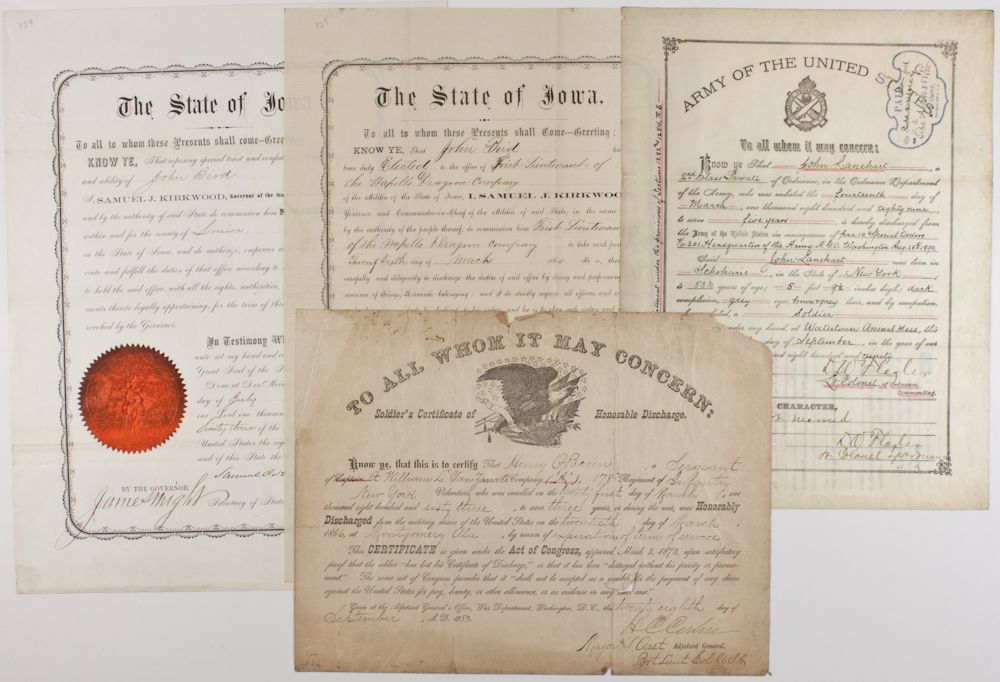 The State of Iowa
To all to whom these Presents shall come--Greeting
KNOW YE, That reposing special trust and
and ability of John Bird
I, SAMUEL J. KIRKWOOD, Governor of the
and by the authority of said State do commission him
within and for the county of Louisa
in the State of Iowa, and do authorize, empower
cute and fulfill the duties of that office according to
to hold the said office, with all the rights, authorities,
ments thereto legally appertaining, for the term of
revoked by the Governor.
In Testimony
set my hand and
Great Seal of the
Done at Des
day of July
our Lord one
sixty three of the
United States the
and of this State the
Samuel
BY THE GOVERNOR.
James Wright
Secretary of State
The State of Iowa.
To all to whom these Presents shall Come--Greeting:
KNOW YE, That John Bird
been duly Elected to the office of First Lieutenant of
the Wapello Dragoon Company
of the Militia of the State of Iowa, I, SAMUEL J. KIRKWOOD
Governor and Commander-in-Chief of the Militia of said State, in the name
by the authority of the people thereof, do commission him First Lieutenant
of the Wapello Dragoon Company to take rank from
Twenty Sixth day of March He is, there
carefully and diligently to discharge the duties of said office by doing and performing
manner of things, thereunto belonging: and I do strictly require all officers and
ARMY OF THE UNITED STATES
PAID
To all whom it may concern:
Know ye That John Lanehart, a
2nd Class Private of Ordnance, in the Ordnance Department
of the Army, who was enlisted the fourteenth day of
March, one thousand eight hundred and eighty nine,
to serve five years is hereby discharged from
the Army of the United States in consequence of par. 12 Special Orders
No 201 Headquarters of the Army A.G.O. Washington Aug 28th 1890
Said John Lanehart was born in
Schoharie, in the State of New York
is 53½ years of age; 5 feet 9¼ inches high; dark
complexion, grey eyes, brown grey hair, and by occupation,
a Soldier
under my hand, at Watertown Arsenal Mass, this
day of September, in the year of our
eight hundred and ninety
D W Flagler
Lt Colonel of Ordnance,
Commanding.
CHARACTER,
D W Flagler
TO ALL WHOM IT MAY CONCERN:
Soldier's Certificate of Honorable Discharge.
Know ye, that this is to certify That Henry O'Brien, a Sergeant
of Captain Lt William L. Van Zandts Company, (K), 178 Regiment of Infantry
New York Volunteers, who was enrolled on the twenty first day of March, one
thousand eight hundred and sixty three, to serve three years, or during the war, was Honorably
Discharged from the military service of the United States on the twentieth day of March,
1866, at Montgomery Ala, by reason of expiration of term of service
This CERTIFICATE is given under the Act of Congress, approved March 3, 1873, upon satisfactory
proof that the soldier "has lost his Certificate of Discharge," or that it has been "destroyed without his privity or procure-
ment." The same act of Congress provides that it "shall not be accepted as a voucher for the payment of any claim
against the United States for pay, bounty, or other allowance, or as evidence in any other case."
Given at the Adjutant General's Office, War Department, Washington, D. C., this twenty eighth day of
September, A. D. 188
Major & Asst Adjutant General.
Bvt Lieut Col U.S.A.